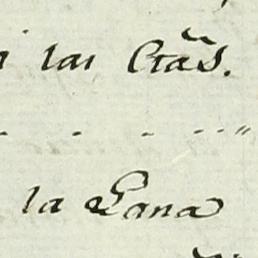 las Ctãs.
- - - - - "
la Lana